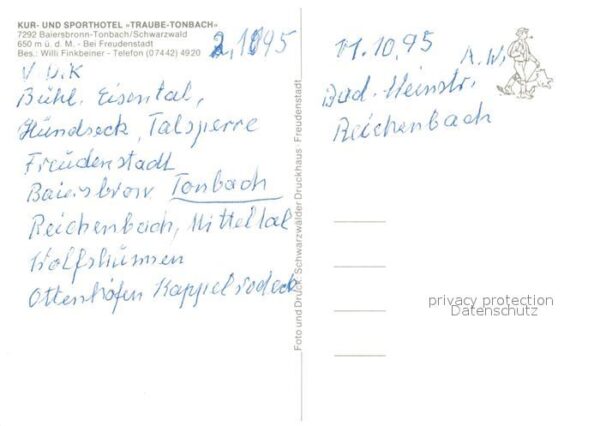 KUR- UND SPORTHOTEL »TRAUBE-TONBACH«
7292 Baiersbronn-Tonbach/Schwarzwald
650 m ü. d. M. - Bei Freudenstadt
Bes.: Willi Finkbeiner - Telefon (07442) 4920
V d K
Bühl. Eisental,
Hundseck, Talsperre
Freudenstadt
Baiersbron Tonbach
Reichenbach, Mitteltal
Ottenhöfen Kappelrodeck
Foto und Druck: Schwarzwälder Druckhaus · Freudenstadt
11.10.95
A.W.
Bad.
Reichenbach
privacy protection
Datenschutz